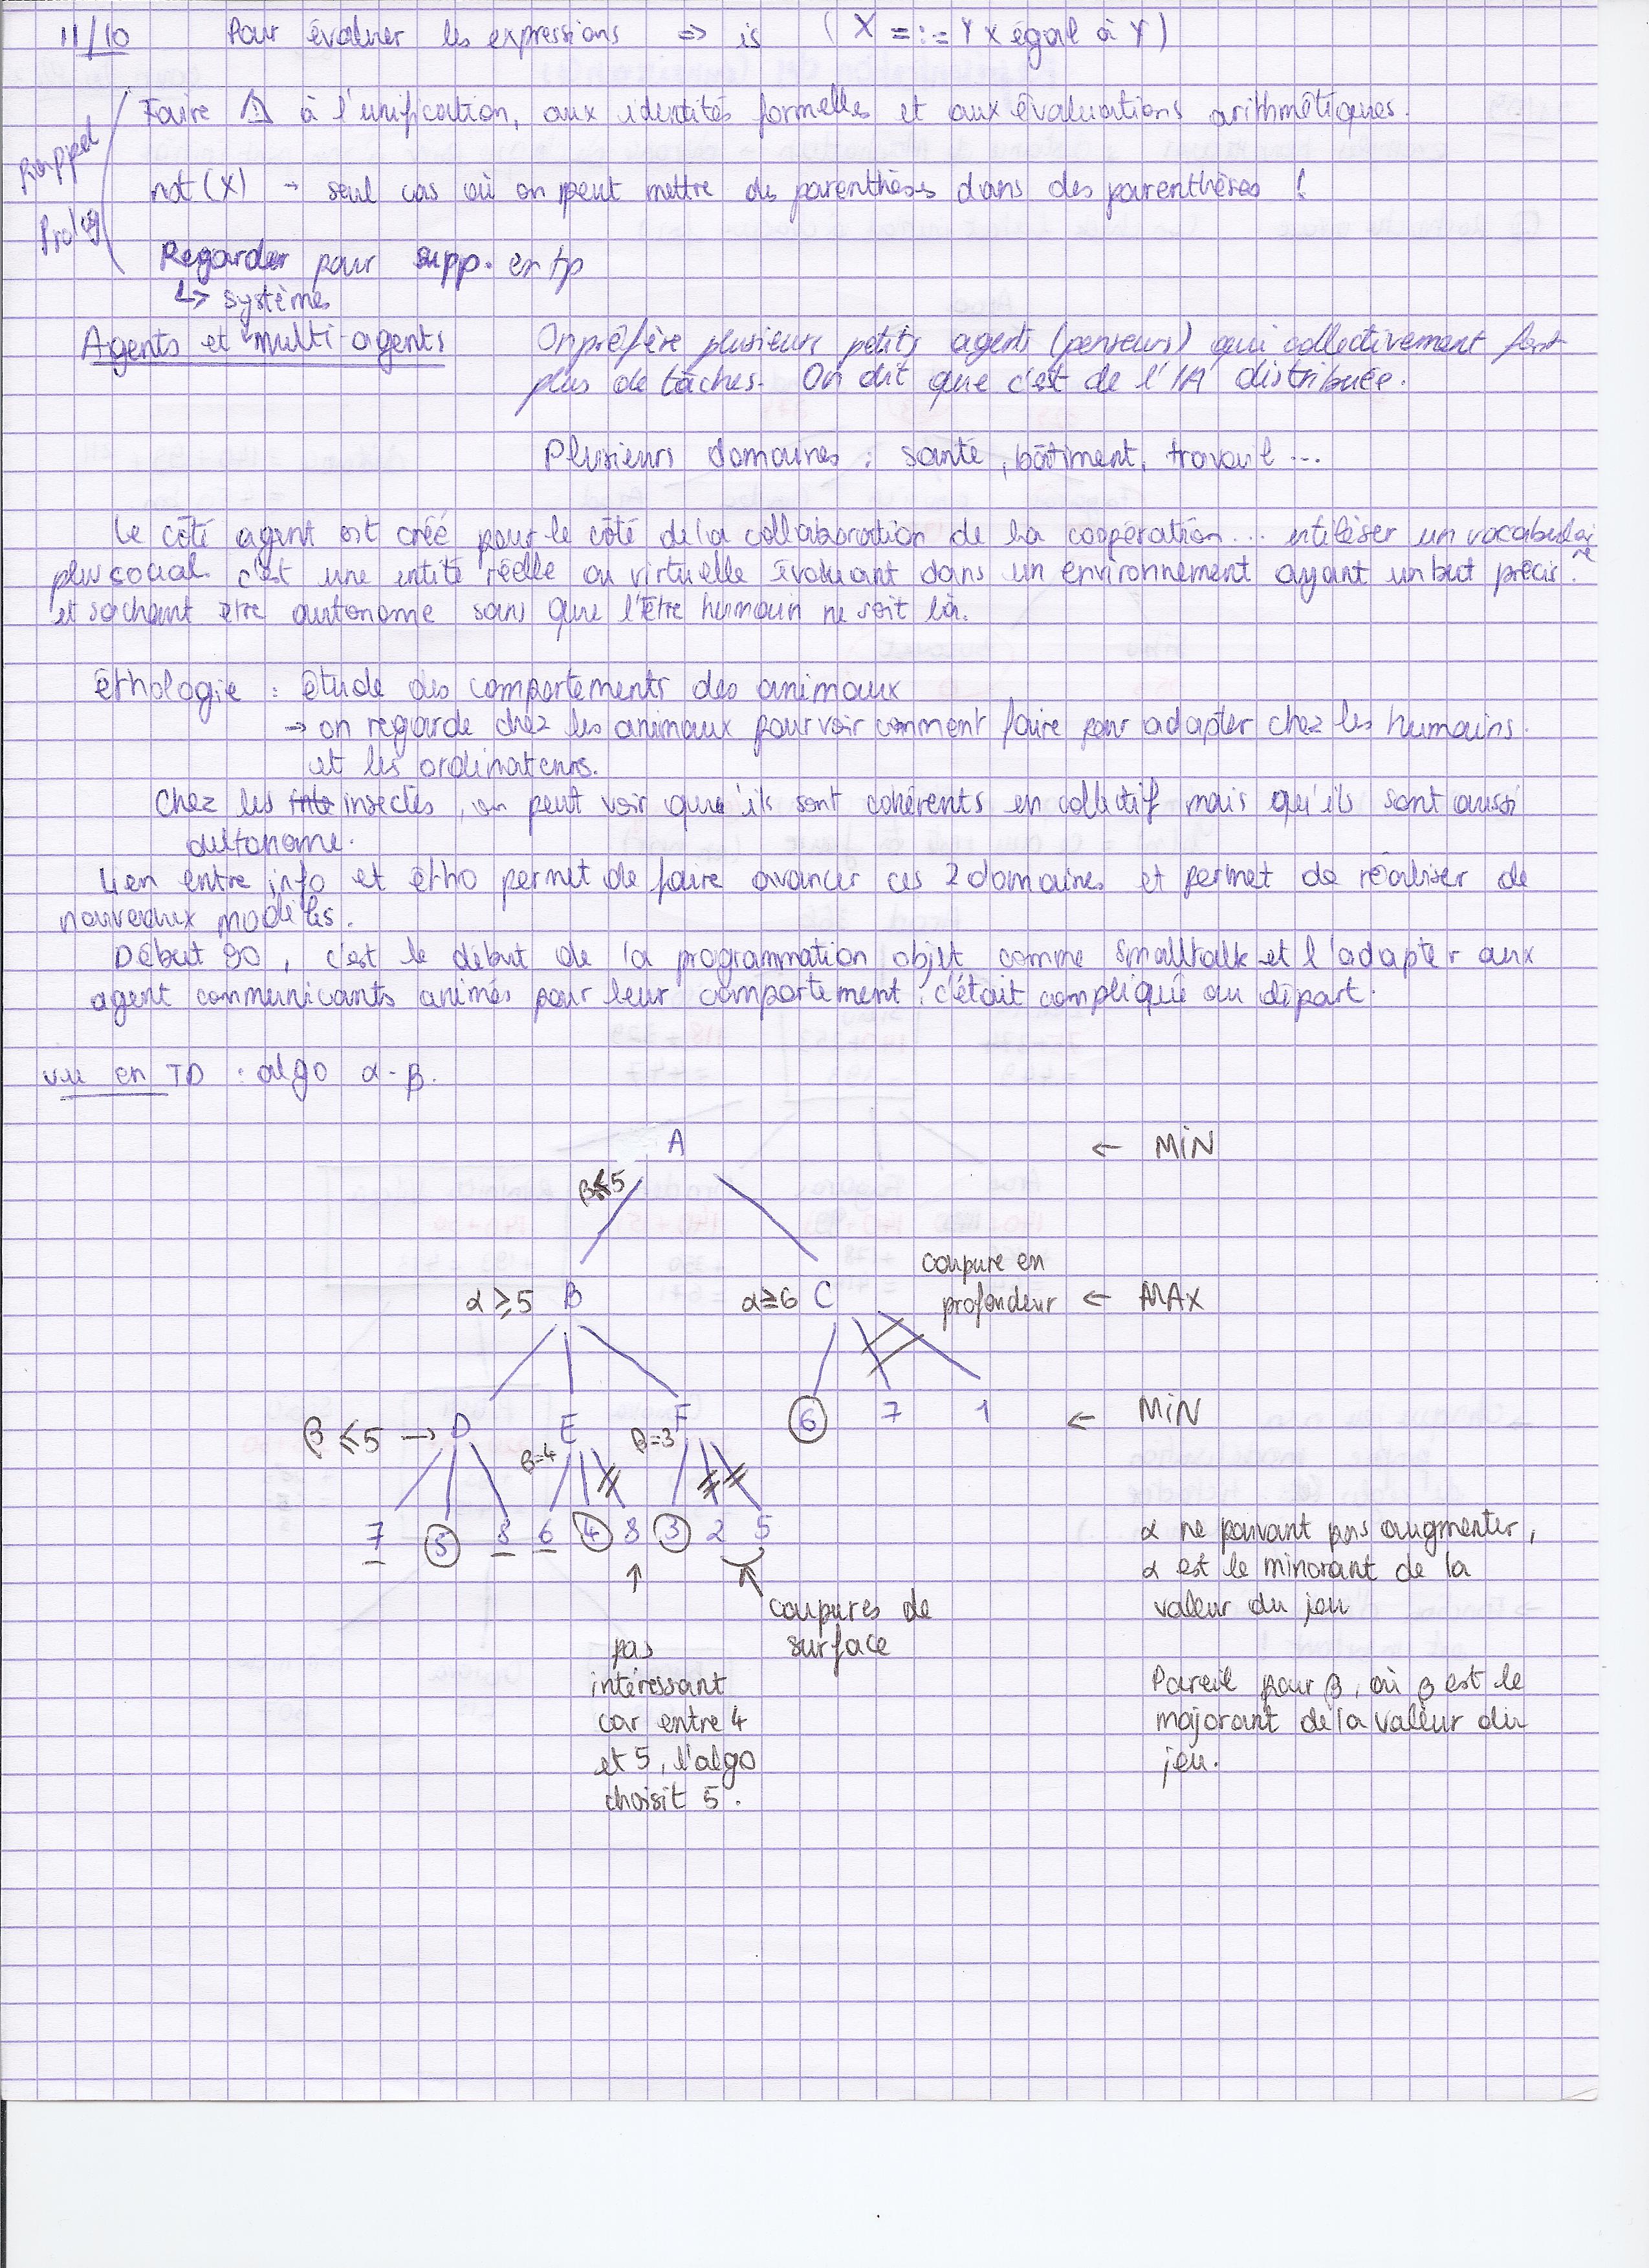 11/10 Pour évaluer les expressions => is ( X =:= Y X égal à Y )
Rappel Prolog
Faire ⚠ à l'unification, aux identités formelles et aux évaluations arithmétiques.
not (X) → seul cas où on peut mettre des parenthèses dans des parenthèses !
Regarder pour supp. en tp
↳ systèmes
Agents et multi-agents On préfère plusieurs petits agents (penseurs) qui collectivement font
plus de tâches. On dit que c'est de l'IA distribuée.
Plusieurs domaines : santé, bâtiment, travail ...
Le côté agent est créé pour le côté de la collaboration de la coopération... utiliser un vocabulaire
plus social. c'est une entité réelle ou virtuelle évoluant dans un environnement ayant un but précis
et sachant être autonome sans que l'être humain ne soit là.
éthologie : étude des comportements des animaux
→ on regarde chez les animaux pour voir comment faire pour adapter chez les humains.
et les ordinateurs.
Chez les insectes, on peut voir qu'ils sont cohérents en collectif mais qu'ils sont aussi
autonome.
Lien entre info et étho permet de faire avancer ces 2 domaines et permet de réaliser de
nouveaux modèles.
Début 90, c'est le début de la programmation objet comme smalltalk et l'adapter aux
agent communicants animés pour leur comportement. c'était compliqué au départ.
vu en TD : algo α-β.
A ← MiN
β≤5
coupure en
α ≥ 5 B α≥6 C profondeur ← MAX
β ≤ 5 → D β=4 E β=3 F 6 7 1 ← MiN
7 5 8 6 4 8 3 2 5
↑ coupures de
surface
pas
intéressant
car entre 4
et 5, l'algo
choisit 5.
α ne pouvant pas augmenter,
α est le minorant de la
valeur du jeu
Pareil pour β, où β est le
majorant de la valeur du
jeu.